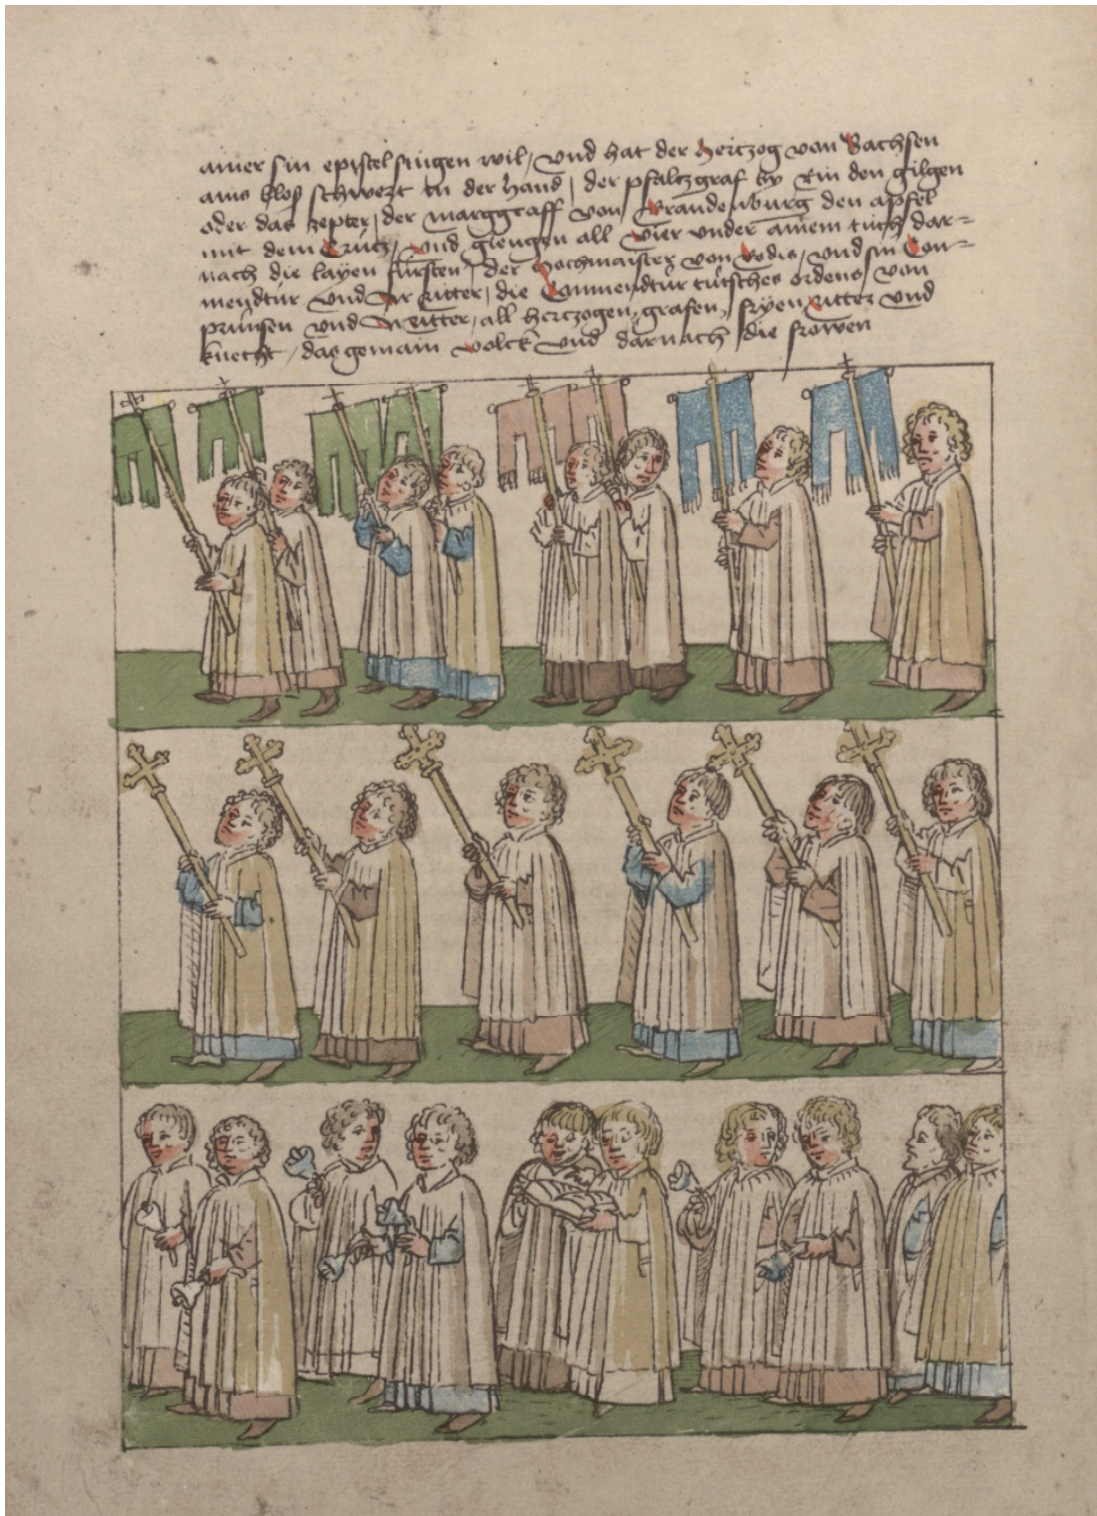 ainer sin epistel singen wil / Und hat der hertzog von Sachsen
ains blos schwert in der hand / der pfaltzgraf by Rin den gilgen
oder das zepter / der marggraff von Brandenburg den apfel
mit dem Crütz / Und giengen all vier under ainem tüch dar=
nach die layen fürsten / der hochmaister von Rodis / und sin Com=
mendtür Und ritter / die Commendtür tütsches ordens / von
prünsen Und ritter / all hertzogen, grafen, fryen, ritter Und
knecht / das gemain volck Und darnach die frowen